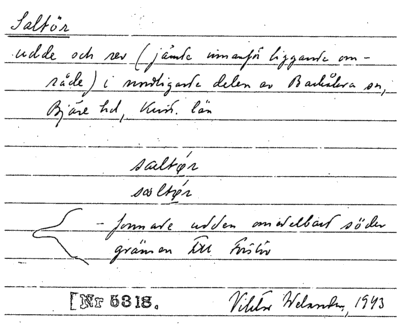 Saltör
udde och rev (jämte innanför liggande om-
råde) i nordligaste delen av Barkåkra sn,
Bjäre hd, Krist. län
saltør
saltør
– formare udden omedelbart söder
gränsen till
[Nr 5318.
Viktor Welander, 1943